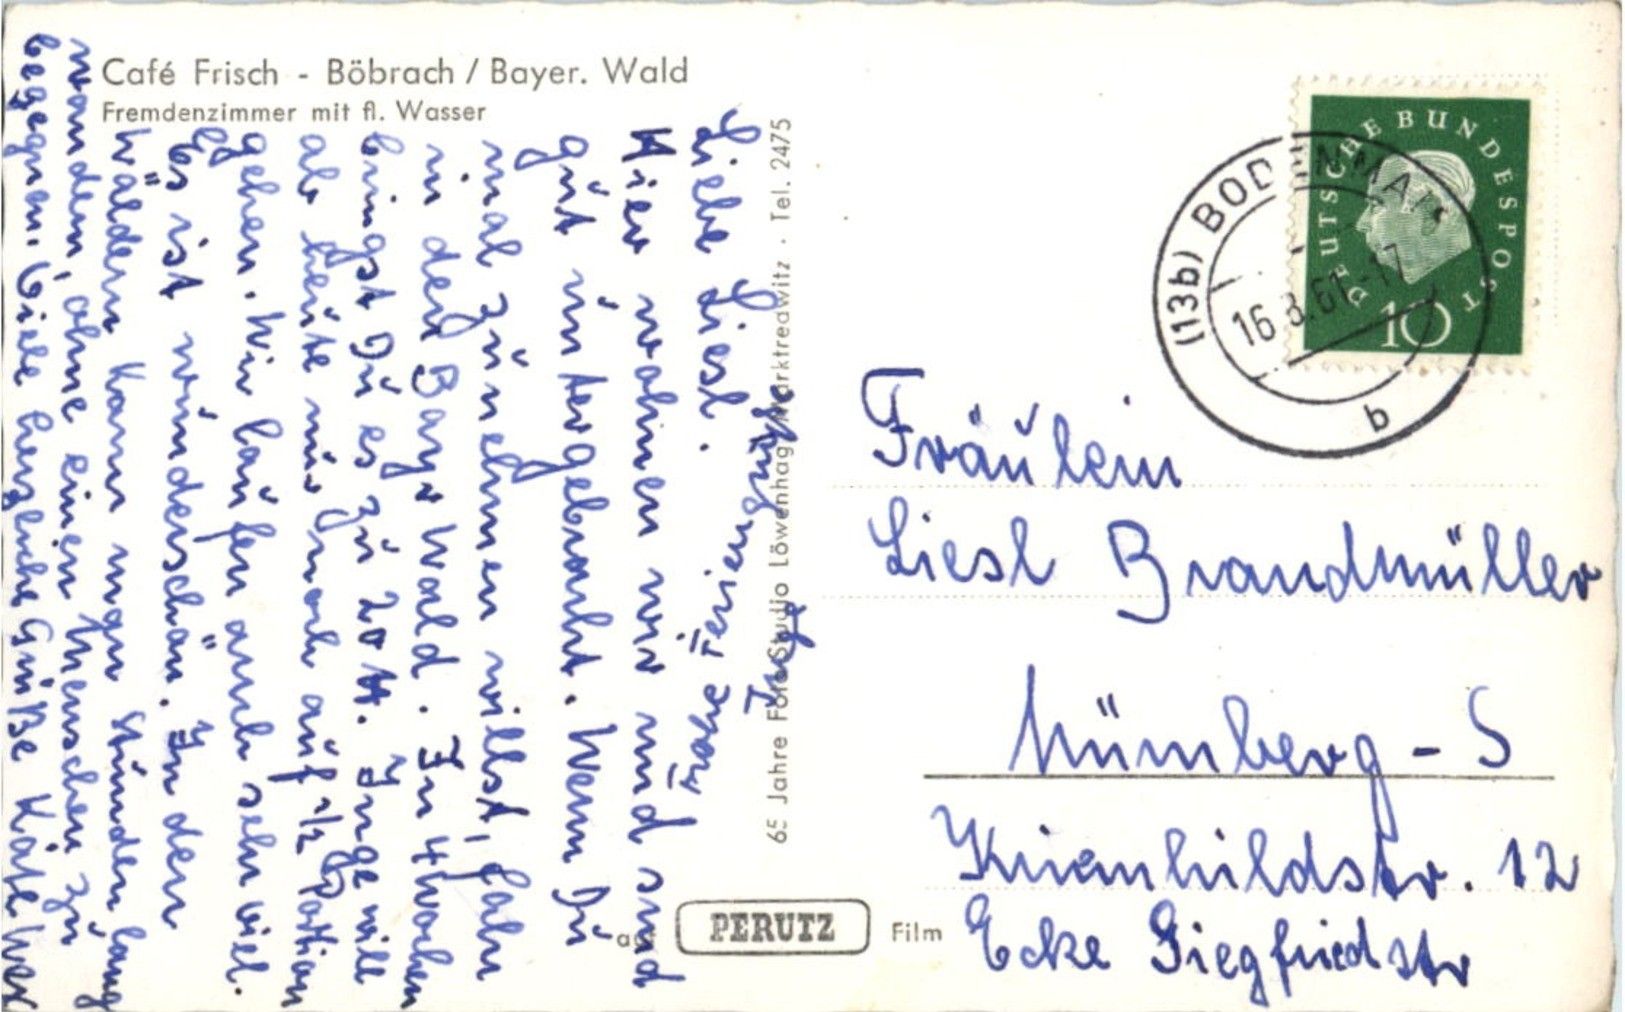 Café Frisch - Böbrach / Bayer. Wald
Fremdenzimmer mit fl. Wasser
Liebe Liesl.
Hier wohnen wir und sind
gut untergebracht. Wenn Du
mal zunehmen willst, fahr
in den Bayr Wald. In 4 Wochen
bringst Du es zu 20 H. Inge will
ab heute nur noch auf 1/2 Portion
gehen. Wir laufen auch sehr viel.
Es ist wunderschön. In den
Wäldern kann man stundenlang
wandern, ohne einen Menschen zu
begegnen. Viele herzliche Grüße Käte Her
Frohe Feriengrüße
Inge
65 Jahre Foto-Studio Löwenhag Marktredwitz · Tel. 2475
PERUTZ
Film
DEUTSCHE BUNDESPOST
10
(13b) BODENMAIS
16.8.61-17
b
Fräulein
Liesl Brandmüller
Nürnberg - S
Kriemhildstr. 12
Ecke Siegfriedstr